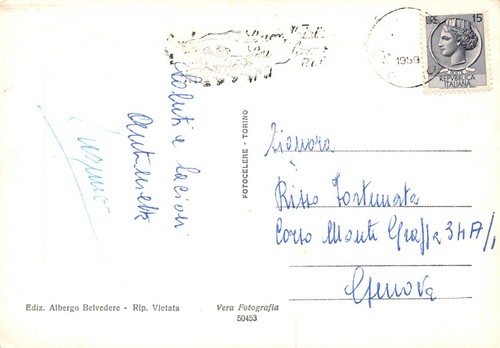 LIRE 15
POSTE
REPUBBLICA
ITALIANA
1959
Saluti e bacioni
Antonietta
FOTOCELERE - TORINO
Signora
Risso Fortunata
Corso Monte Grappa 34A/1
Genova
Ediz. Albergo Belvedere - Rip. Vietata
Vera Fotografia
50453